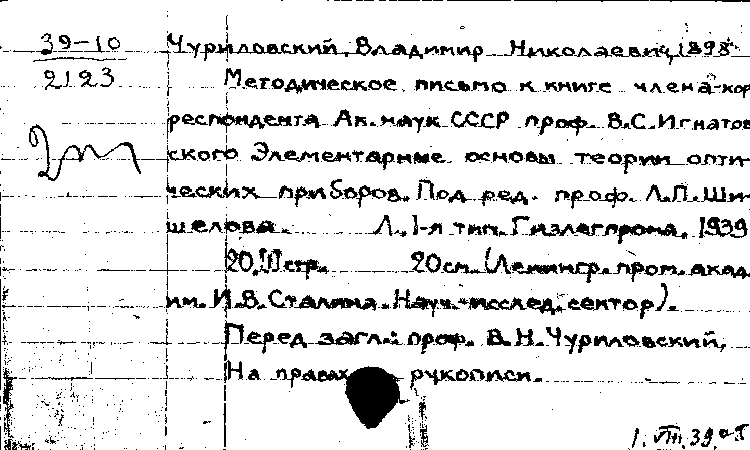 39-10
2123
Чуриловский, Владимир Николаевич, 1898-
Методическое письмо к книге члена-кор
респондента Ак. наук СССР проф. В.С. Игнатов
ского Элементарные основы теории опти-
ческих приборов. Под ред. проф. Л.П. Ши-
шелова. Л., 1-я тип. Гизлегпрома, 1939
20, стр. 20 см. (Ленингр. пром. акад.
им. И.В. Сталина. Науч.-исслед. сектор).
Перед загл.: проф. В.Н. Чуриловский,
На правах рукописи.
1. VIII. 39.